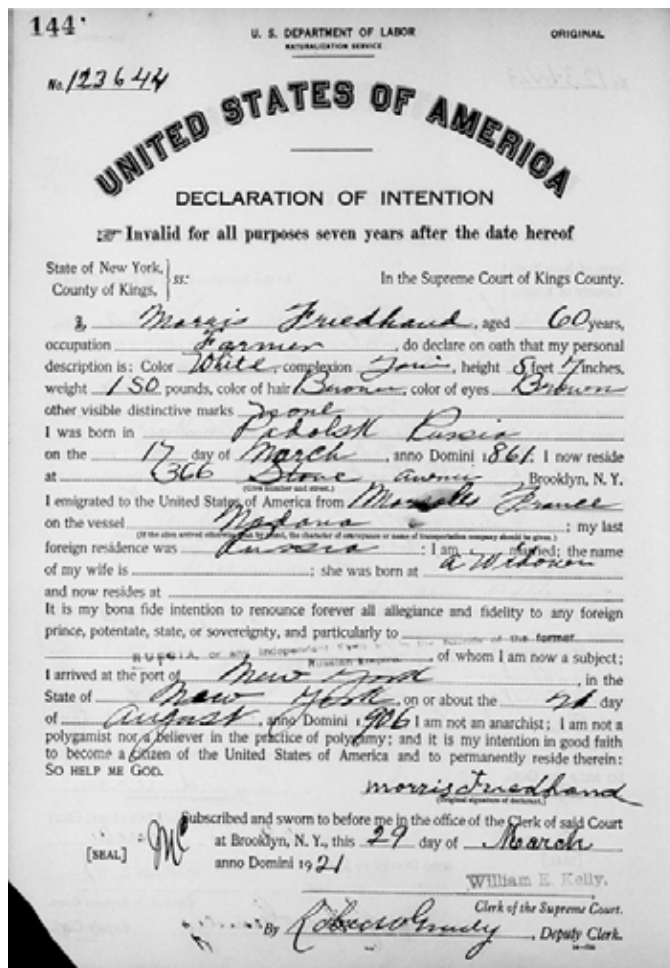 144
U. S. DEPARTMENT OF LABOR
ORIGINAL
NATURALIZATION SERVICE
No. 123644
UNITED STATES OF AMERICA
DECLARATION OF INTENTION
Invalid for all purposes seven years after the date hereof
State of New York,
County of Kings,
ss:
In the Supreme Court of Kings County.
I, Morris Friedhand, aged 60 years,
occupation Farmer, do declare on oath that my personal
description is: Color White, complexion, height 5 feet 7 inches,
weight 150 pounds, color of hair Brown, color of eyes Brown
other visible distinctive marks none
I was born in Podolsk Russia
on the 17 day of March, anno Domini 1861. I now reside
at 366 Stone Avenue, Brooklyn, N. Y.
(Give number and street.)
I emigrated to the United States of America from France
on the vessel ; my last
(If the alien arrived otherwise than by vessel, the character of conveyance or name of transportation company should be given.)
foreign residence was Russia ; I am married; the name
of my wife is ; she was born at a Widower
and now resides at
It is my bona fide intention to renounce forever all allegiance and fidelity to any foreign
prince, potentate, state, or sovereignty, and particularly to of the former
RUSSIA, or any independent Russian Empire, of whom I am now a subject;
I arrived at the port of New York, in the
State of New York, on or about the day
of August, anno Domini 1906 I am not an anarchist; I am not a
polygamist nor a believer in the practice of polygamy; and it is my intention in good faith
to become a citizen of the United States of America and to permanently reside therein:
SO HELP ME GOD.
morris Friedhand
(Original signature of declarant.)
Subscribed and sworn to before me in the office of the Clerk of said Court
at Brooklyn, N. Y., this 29 day of March
[SEAL]
anno Domini 1921
William E. Kelly.
Clerk of the Supreme Court.
By , Deputy Clerk.